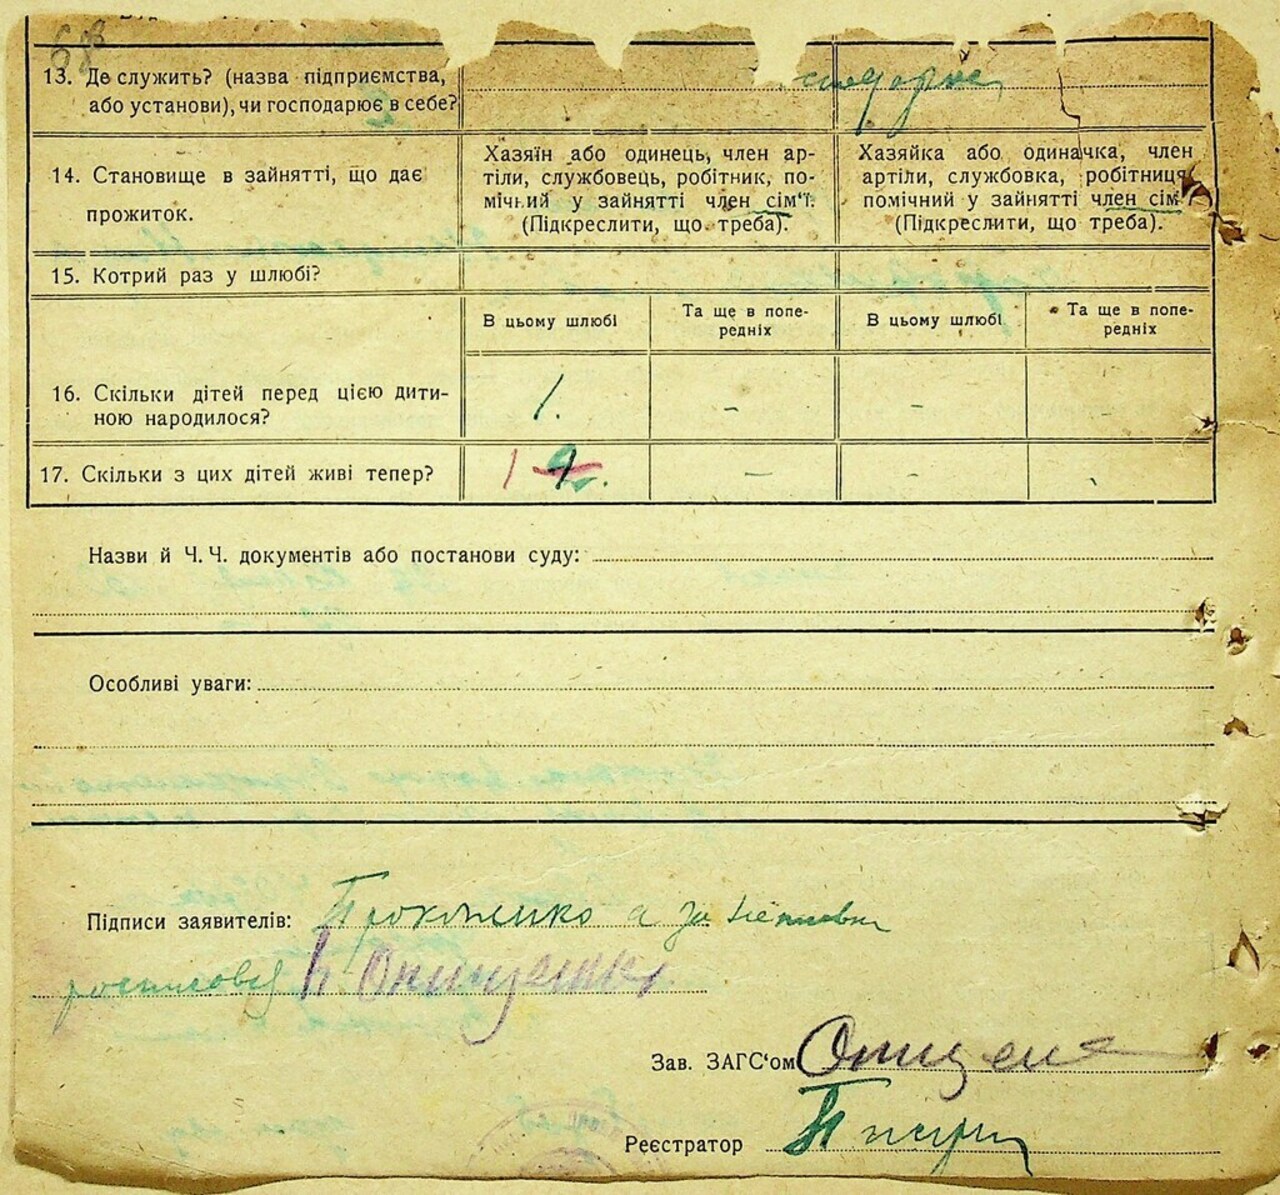 68
13. Де служить? (назва підприємства,
або установи), чи господарює в себе?
14. Становище в зайнятті, що дає
прожиток.
Хазяїн або одинець, член ар-
тіли, службовець, робітник, по-
мічний у зайнятті член сім'ї.
(Підкреслити, що треба).
Хазяйка або одиначка, член
артіли, службовка, робітниця
помічний у зайнятті член сім
(Підкреслити, що треба).
15. Котрий раз у шлюбі?
В цьому шлюбі
Та ще в попе-
редніх
В цьому шлюбі
Та ще в попе-
редніх
16. Скільки дітей перед цією дити-
ною народилося?
1. - - -
17. Скільки з цих дітей живі тепер?
1 - -
Назви й Ч. Ч. документів або постанови суду:
Особливі уваги:
Підписи заявителів: Прокопенко а за
Онищенко
Зав. ЗАГС'ом Онищен
Реєстратор